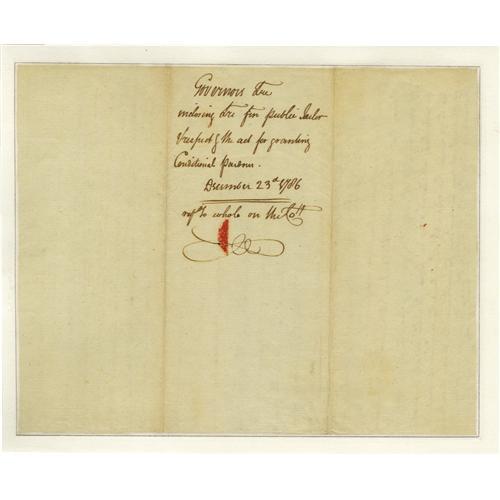 Governors Lre
inclosing Lre fm public Jailor
respectg the act for granting
Conditional Pardons.
December 23d 1786
refd to whole on the Com